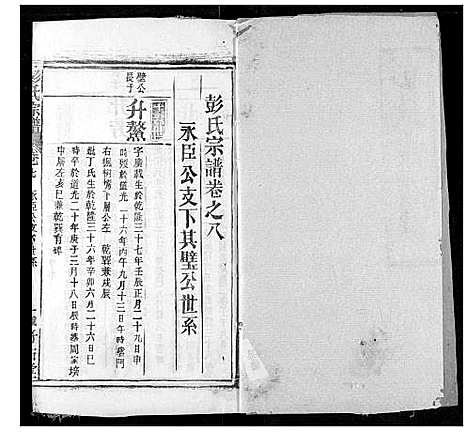 彭氏宗譜卷之八
永臣公支下其璧公世系
璧公
長子
升鰲
字廣載生於乾隆三十七年壬辰正月二十九日申
時歿於道光二十六年丙午九月十三日午時葬門
右堀樹灣下層公左 乾巽兼戌辰
娶丁氏生於乾隆三十六年辛卯六月二十六日巳
時卒於道光二十年庚子三月十八日辰時葬周家塆
中層左亥巳兼乾巽有碑
彭氏宗譜